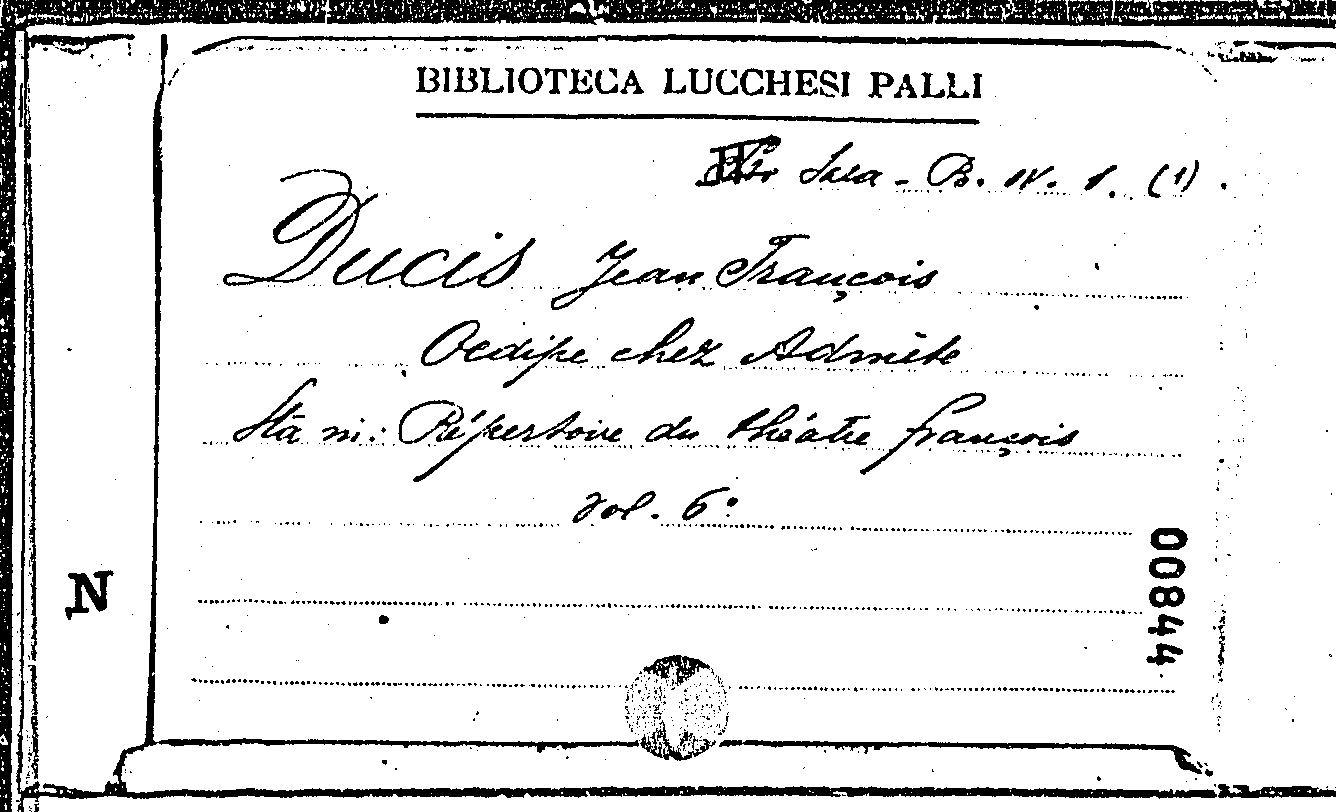 BIBLIOTECA LUCCHESI PALLI
Sala - B. IV. 1. (1).
Ducis Jean François
Oedipe chez Admète
Sta in: Répertoire du théatre françois
vol. 6º
00844
N